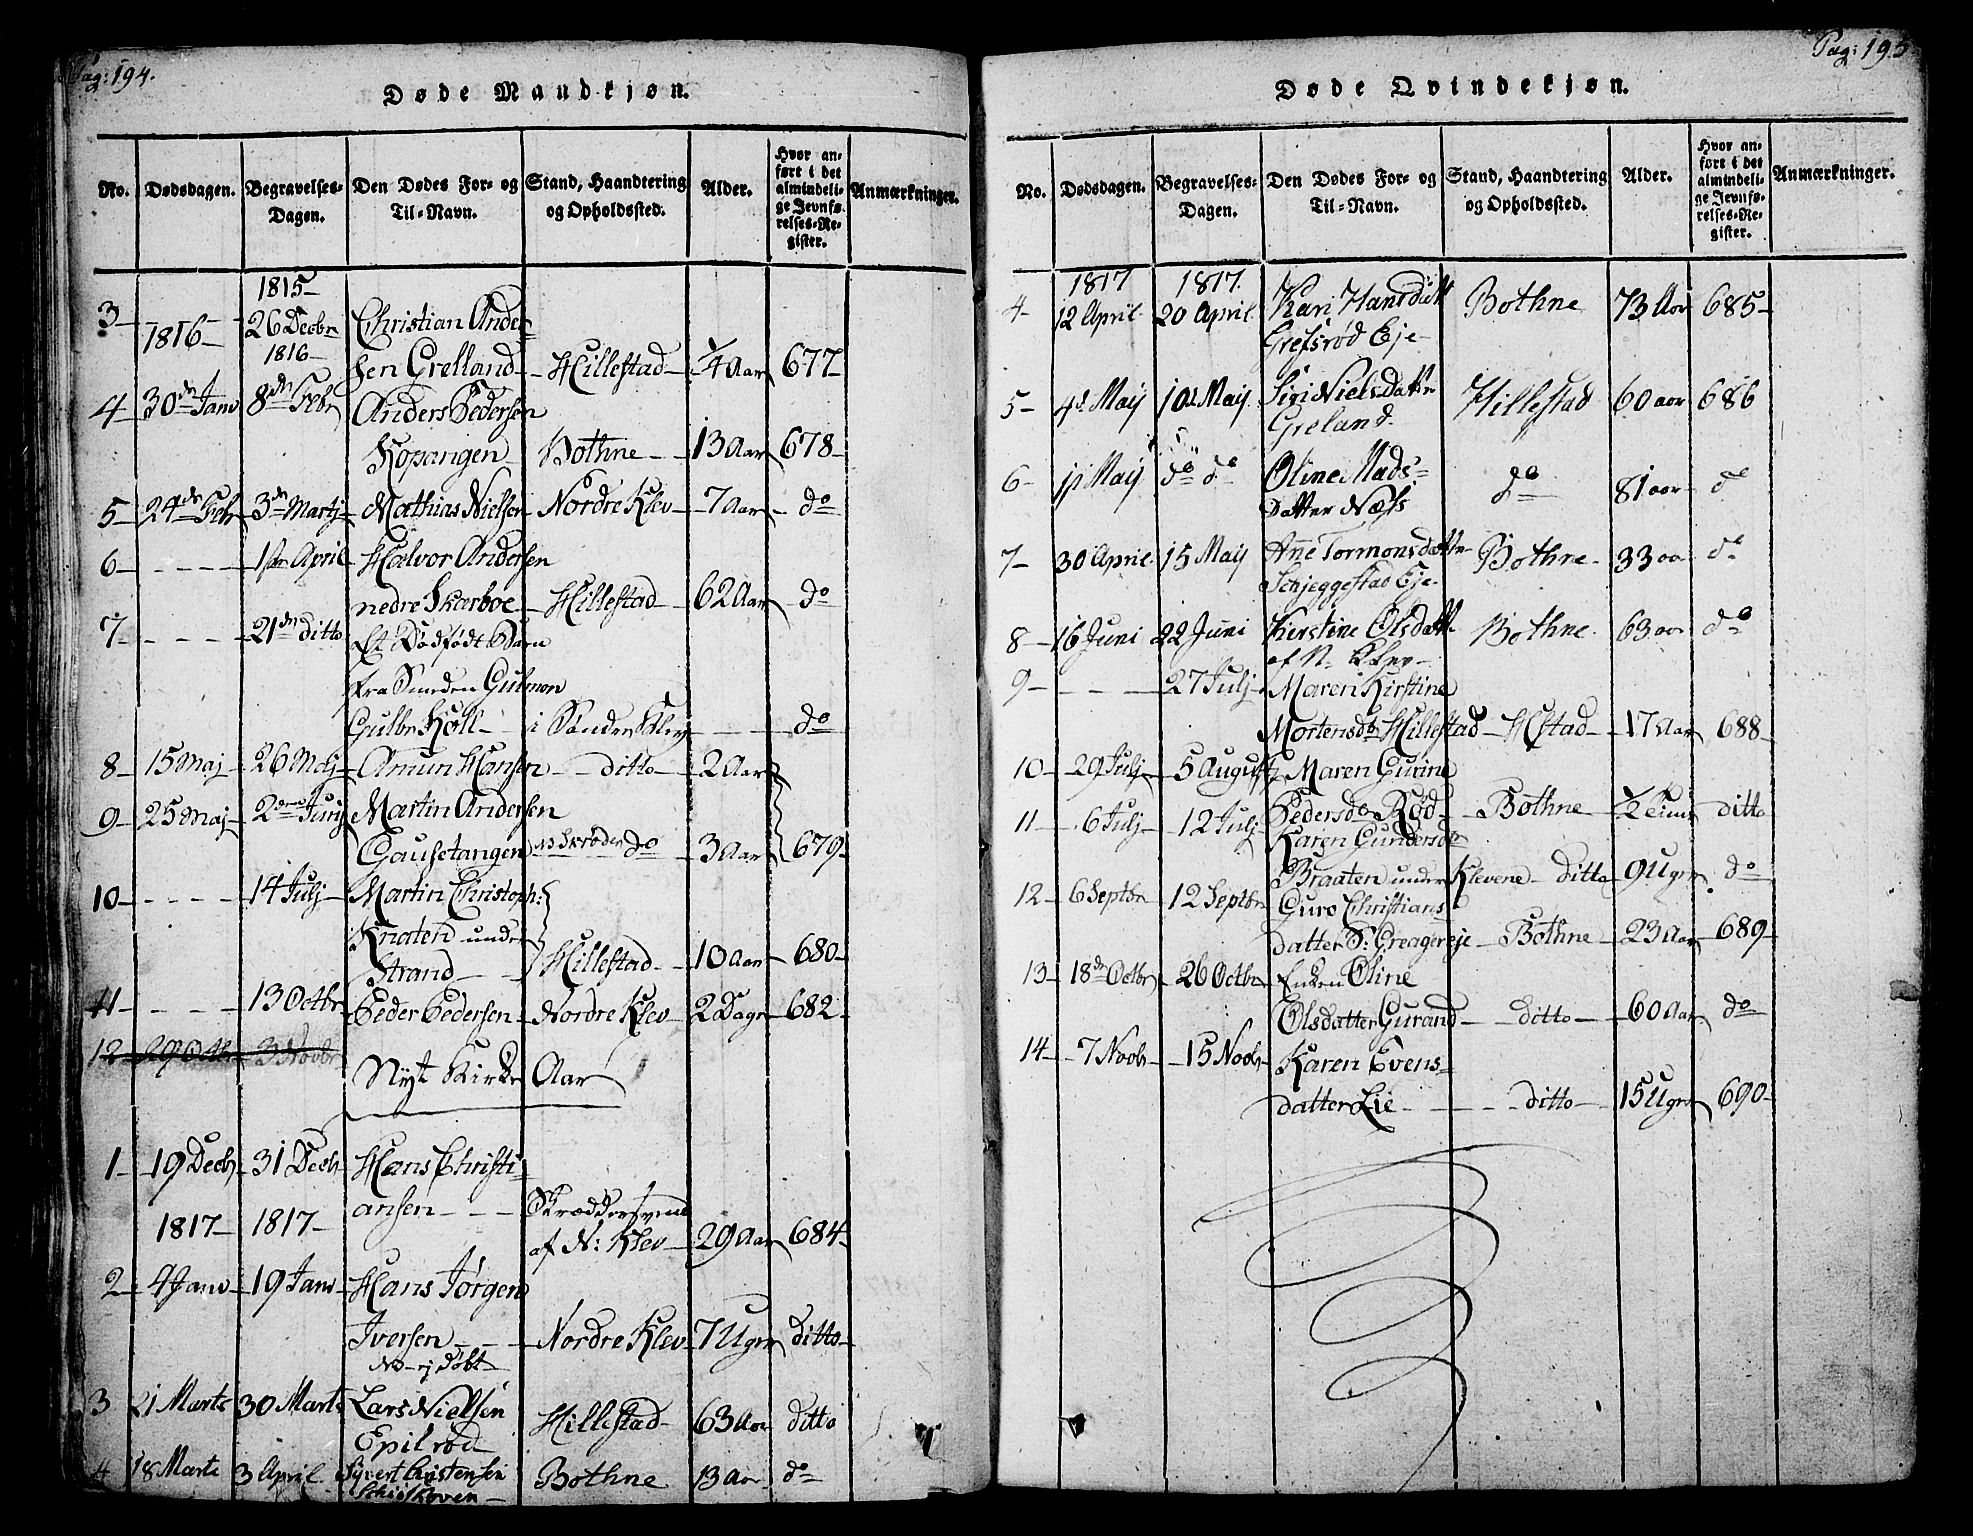 Pag: 194.
Døde Mandkjøn.
No. Dødsdagen. Begravelses-Dagen. Den Dødes For- og Til-Navn. Stand, Haandtering og Opholdssted. Alder. Hvor anført i det almindelige Jevnførelses-Register. Anmærkninger.
1815
3 26 Decbr Christian Ander
1816 1816
sen Grelland Hillestad 1/4 Aar 677
4 30de Janv 8de Febr Anders Pedersen
Kopangen Bothne 13 Aar 678
5 24de Febr 3de Martj Mathias Nielsen Nordre Klev 7 Aar do
6 1ste April Halvor Andersen
nedre Skarboe Hillestad 62 Aar do
7 21de ditto Et Dødfødt Barn
fra Sunden
i Sunder do
8 15 Maj 26 Maj Amun Hansen ditto 2 Aar
9 25 Maj 2den Junj Martin Andersen
Gausetangen do 3 Aar 679
10 14 Julj Martin Christoph:
Knaten under
Strand Hillestad 10 Aar 680
11 13 Octbr Peder Pedersen Nordre Klev 2 Dagr 682
12 29 Octbr 3 Novbr
Nyt Kirke Aar
1 19 Decb 31 Decb Hans Christi-
ansen Skræddersvend
1817 1817 af N: Klev 29 Aar 684
2 4 Janv 19 Janv Hans Jørgen
Iversen Nordre Klev 7 Ugr ditto
NB ej døbt
3 21 Marts 30 Marts Lars Nielsen
Epilrød Hillestad 63 Aar ditto
4 18 Marts 3 April Syvert Christensen Bothne 13 Aar do
Schiølkoven
Pag: 195
Døde Qvindekjøn.
No. Dødsdagen. Begravelses-Dagen. Den Dødes For- og Til-Navn. Stand, Haandtering og Opholdssted. Alder. Hvor anført i det almindelige Jevnførelses-Register. Anmærkninger.
1817 1817.
4 12 April 20 April Kari Hansdatt Bothne 73 Aar 685
Grefsrød Eje
5 4de Maij 10de Maij Siri Nielsdattr Hillestad 60 aar 686
Greland
6 Maij do do Oline Mads=
Datter Næss do 81 aar do
7 30 April 15 Maij Anne Tormonsdattr Bothne 33 aar do
Schjeggestad Eje
8 16 Juni 22 Juni Kirstine Olsdattr Bothne 63 aar do
af N. Klev
9 27 Julj Maren Kirstine
Mortensdtr Hillestad Hstad 17 Aar 688
10 29 Julj 5 August Maren Gurine
Pedersdtr Rød Bothne 1/2 ditto
11 6 Julj 12 Julj Karen Gundersdtr
Braaten under Klevene ditto 9 Ugr do
12 6 Septbr 12 Septbr Guro Christians
datter S: Greagereje Bothne 23 Aar 689
13 18de Octbr 26 Octbr Enken Oline
Olsdatter Gurand ditto 60 Aar do
14 7 Novb 15 Novb Karen Evens-
datter Lie ditto 15 Ugr 690